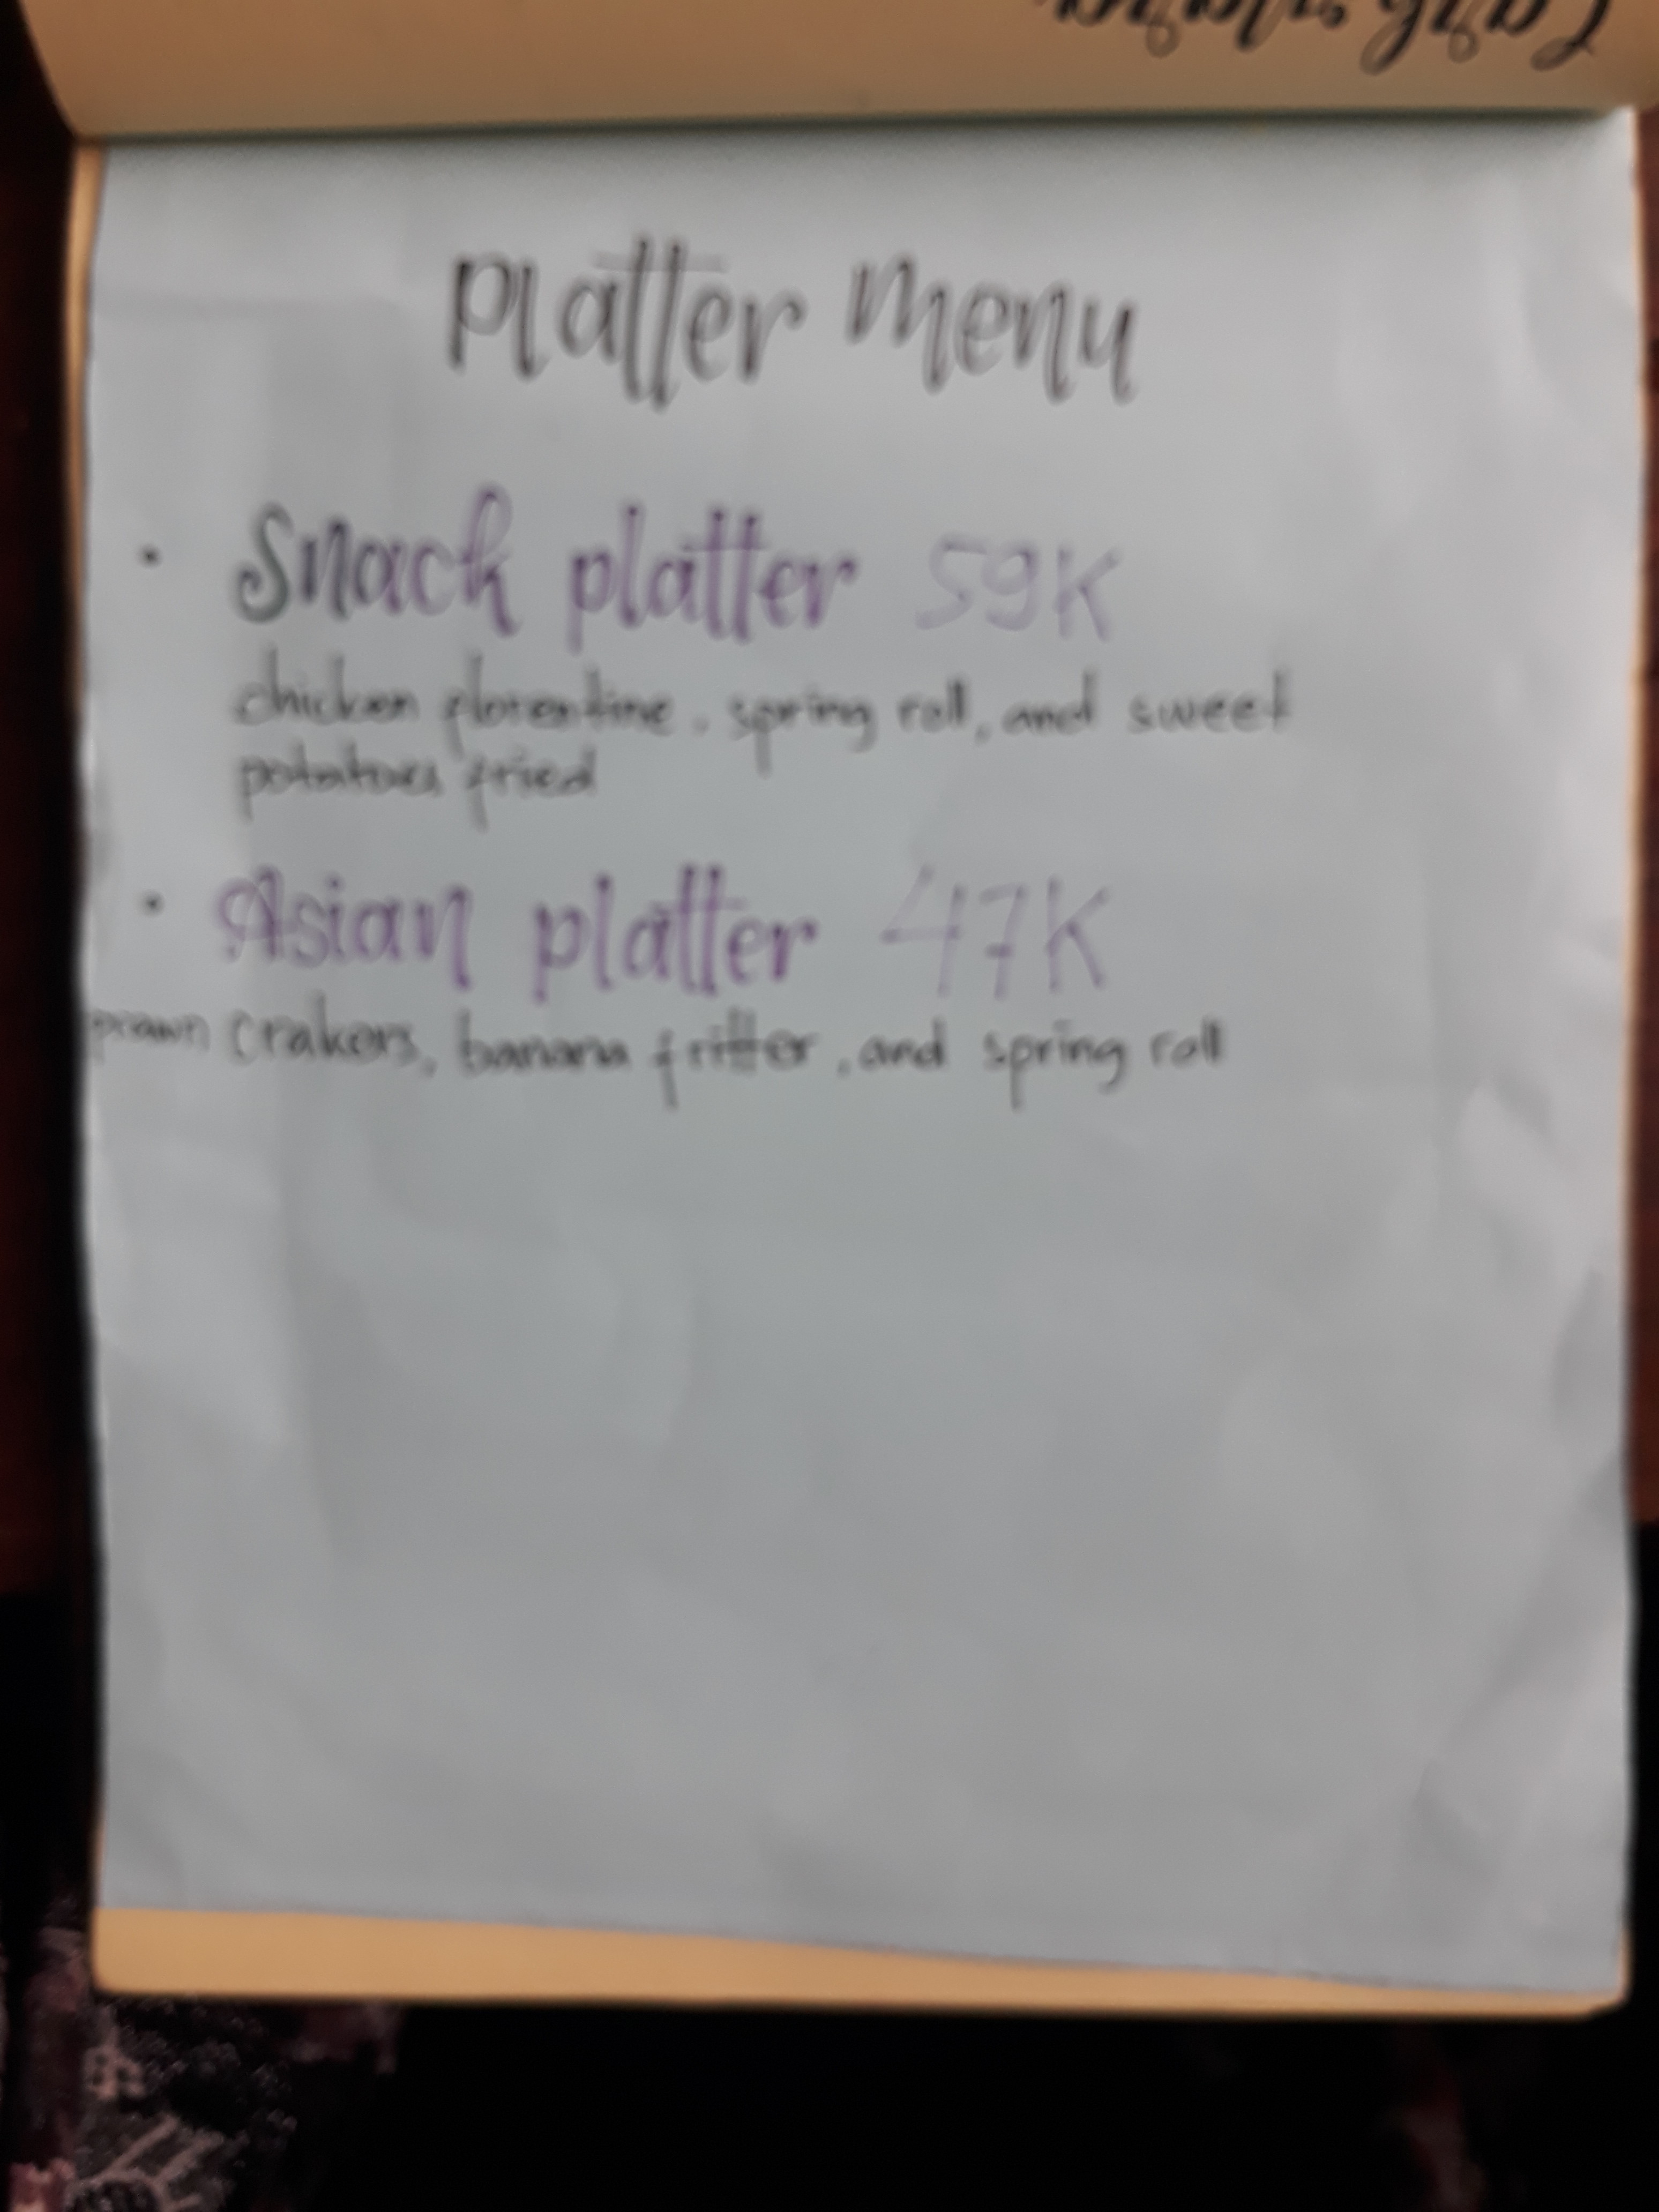 Platter Menu
• Snack platter 59K
chicken florentine, spring roll, and sweet
potatoes fried
• Asian platter 47K
prawn crakers, banana fritter, and spring roll